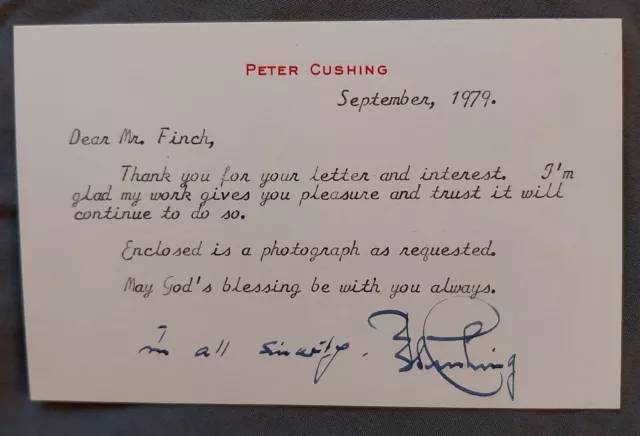 PETER CUSHING
September, 1979.
Dear Mr. Finch,
Thank you for your letter and interest. I'm
glad my work gives you pleasure and trust it will
continue to do so.
Enclosed is a photograph as requested.
May God's blessing be with you always.
In all sincerity. Peter Cushing